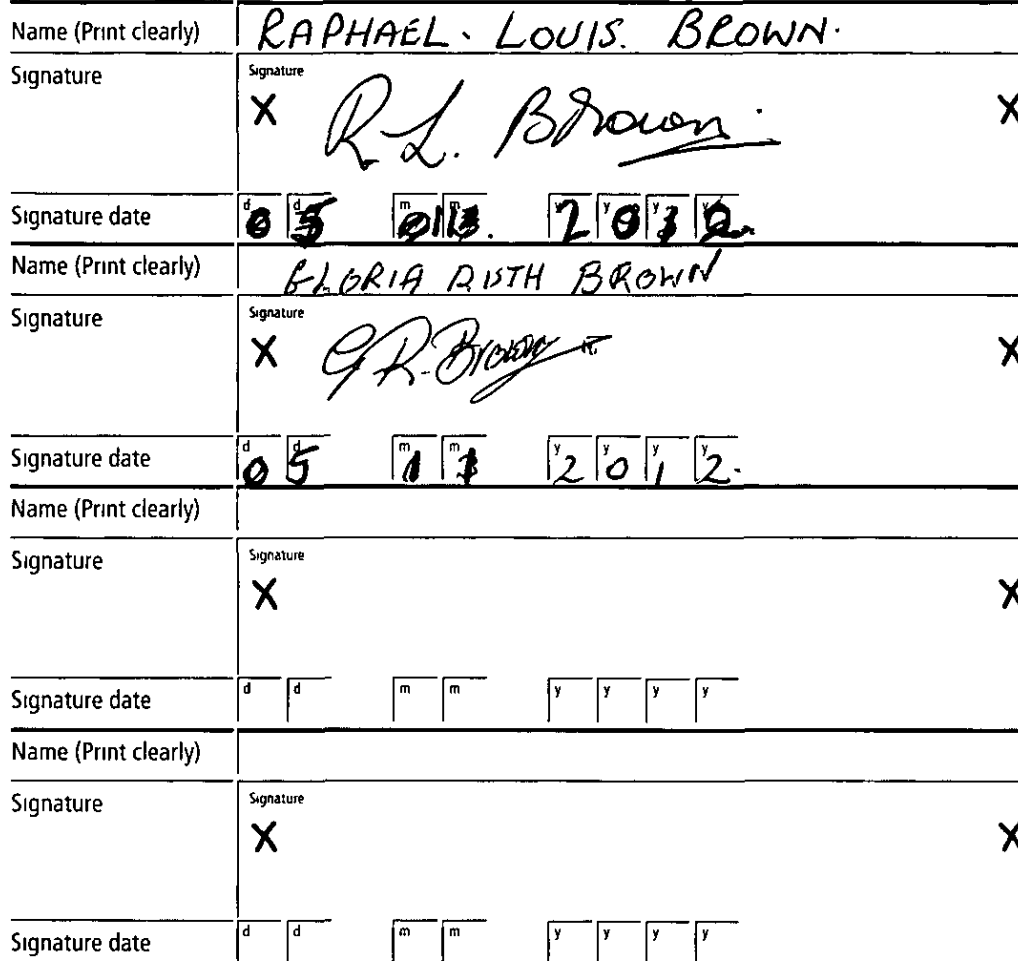 Name (Print clearly) RAPHAEL. LOUIS. BROWN.
Signature Signature
X R.L. Brown. X
Signature date d d m m y y y y 05 2012
Name (Print clearly) GLORIA RUTH BROWN
Signature Signature
X G R. Brown X
Signature date d d m m y y y y 05 11 2012.
Name (Print clearly)
Signature Signature
X X
Signature date d d m m y y y y
Name (Print clearly)
Signature Signature
X X
Signature date d d m m y y y y